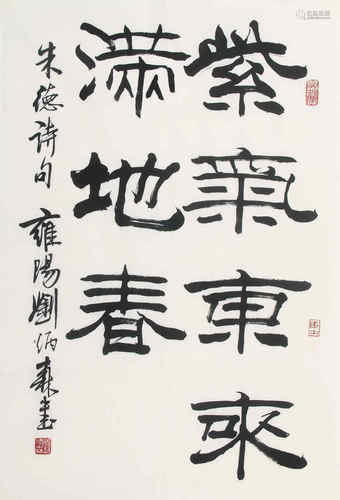 紫氣東來
滿地春
朱德詩句 雍陽劉炳森書